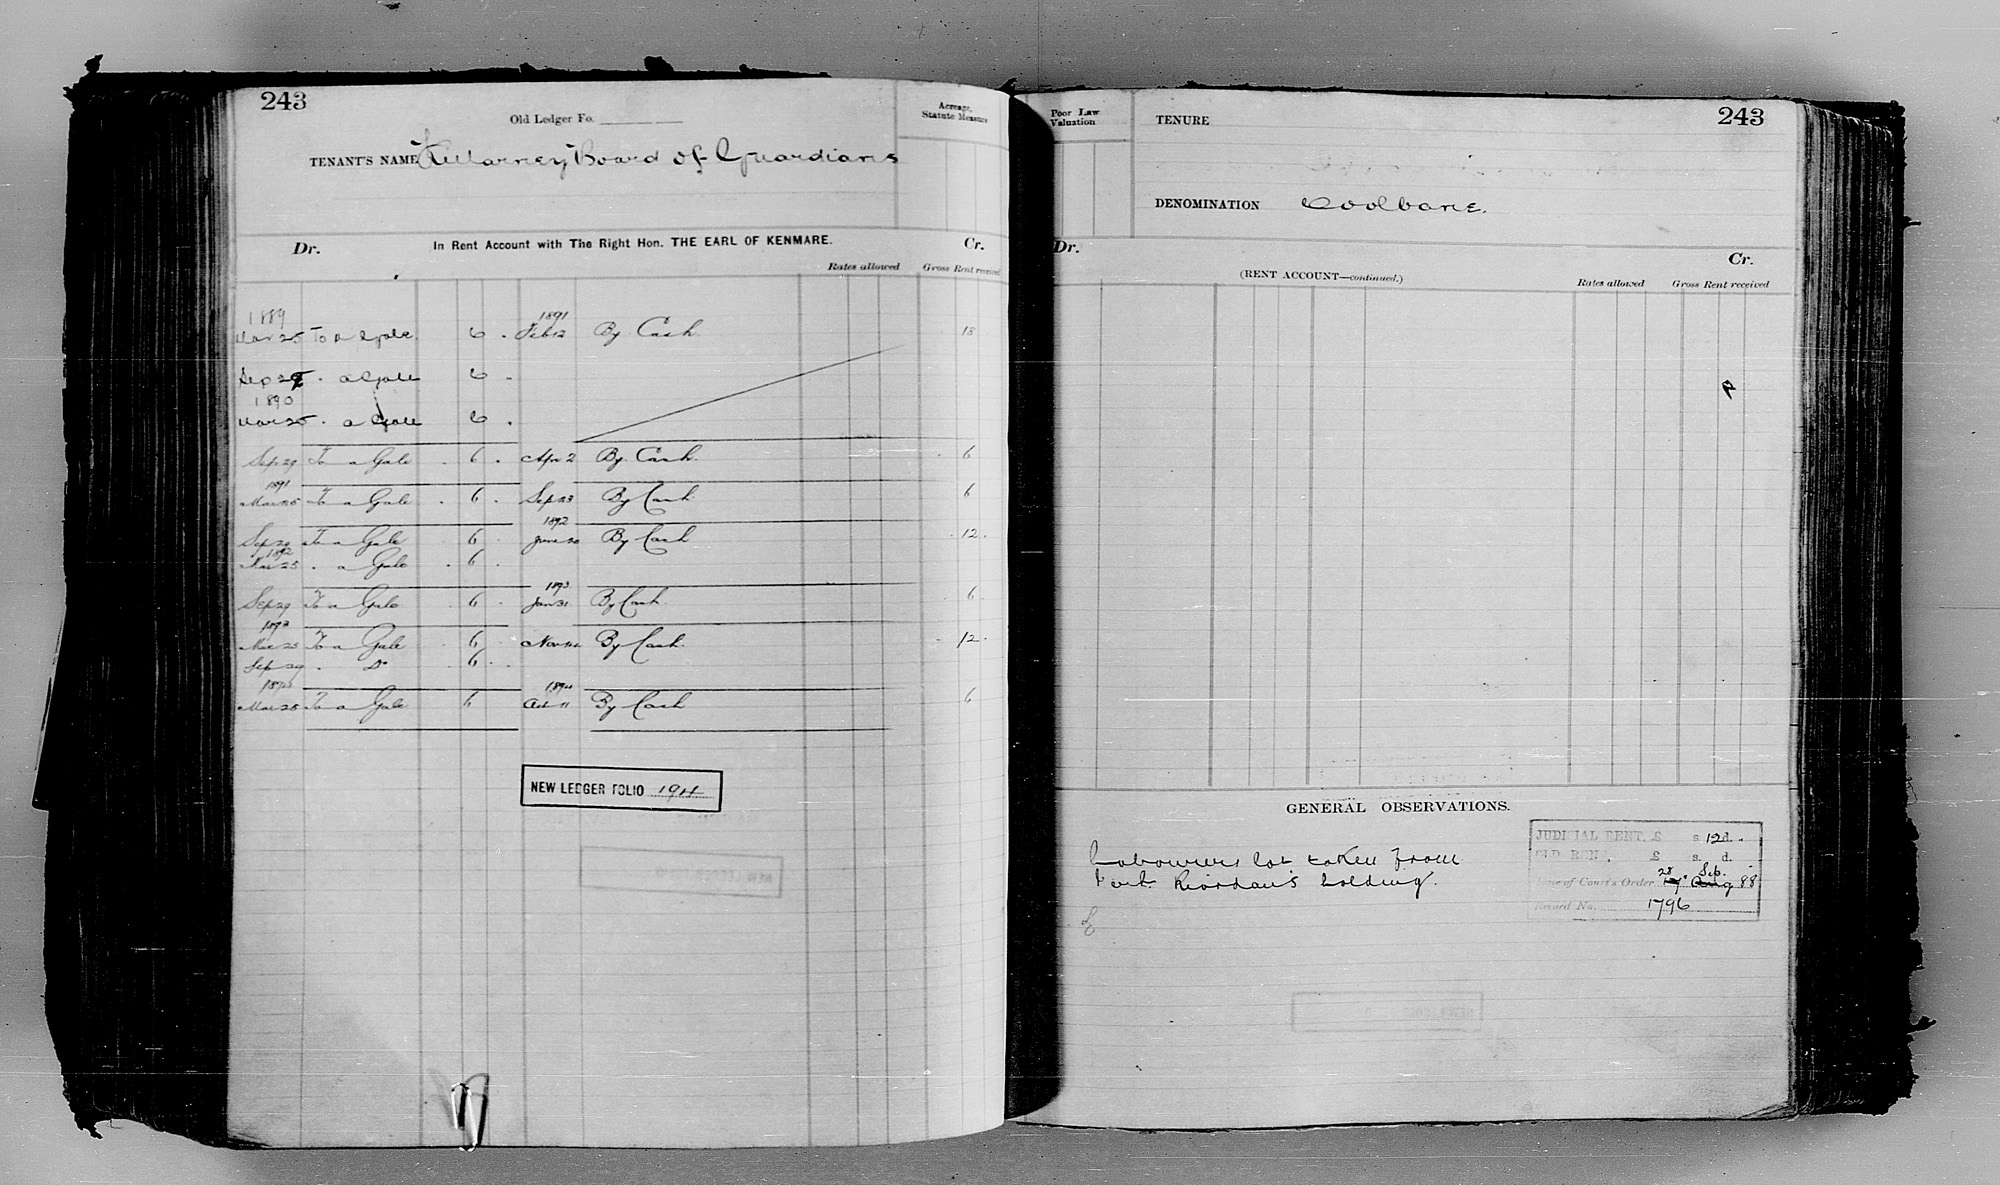 243
Old Ledger Fo.
Acreage, Statute Measure
TENANT'S NAME Killarney Board of Guardians
Dr. In Rent Account with The Right Hon. THE EARL OF KENMARE. Cr.
Rates allowed Gross Rent received
1889 1891
Mar 25 To a Gale. 6 . Feb 12 By Cash 18
Sep 29 . a Gale 6 .
1890
Mar 25 . a Gale 6 .
Sep 29 To a Gale . 6 . Apr 2 By Cash. 6
1891
Mar 25 To a Gale . 6 . Sep 23 By Cash 6
1892
Sep 29 To a Gale . 6 . June 20 By Cash . 12 .
1892
Mar 25 . a Gale . 6 .
1893
Sep 29 To a Gale . 6 . Jan 31 By Cash. . 6 .
1893
Mar 25 To a Gale . 6 . Nov By Cash. . 12 .
Sep 29 . Do . 6 .
1894 1894
Mar 25 To a Gale 6 Oct 11 By Cash 6
NEW LEDGER FOLIO 194
Poor Law Valuation
TENURE
243
DENOMINATION Coolbane.
Dr. Cr.
(RENT ACCOUNT—continued.)
Rates allowed Gross Rent received
GENERAL OBSERVATIONS.
Labourers lot taken from
Riordan's holding.
JUDICIAL RENT. £ s. 12 d.
OLD RENT. £ s. d.
28 Sep.
Date of Court's Order 17 Aug 88
Record No. 1796